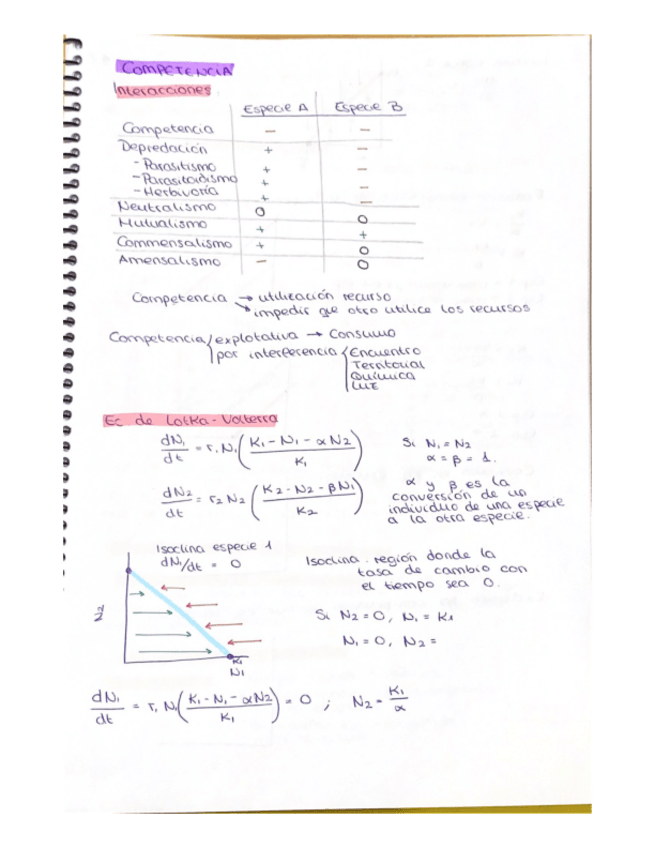 COMPETENCIA
Interacciones
Especie A Especie B
Competencia — —
Depredación + —
- Parasitismo + —
- Parasitoidismo +
- Herbivoría + —
Neutralismo O O
Mutualismo + +
Commensalismo + O
Amensalismo — O
Competencia → utilización recurso
↘ impedir que otro utilice los recursos
Competencia explotativa → Consumo
por interferencia Encuentro
Territorial
Química
Luz
Ec de Lotka-Volterra
dN₁/dt = r₁ N₁ (K₁ - N₁ - αN₂ / K₁) Si N₁ = N₂
α = β = 1.
dN₂/dt = r₂ N₂ (K₂ - N₂ - βN₁ / K₂) α y β es la
conversión de un
individuo de una especie
a la otra especie.
Isoclina especie 1
dN₁/dt = 0
Isoclina . región donde la
tasa de cambio con
el tiempo sea 0.
Si N₂ = 0, N₁ = K₁
N₁ = 0, N₂ =
N₂
K₁
N₁
dN₁/dt = r₁ N₁ (K₁ - N₁ - αN₂ / K₁) = 0 ; N₂ = K₁/α